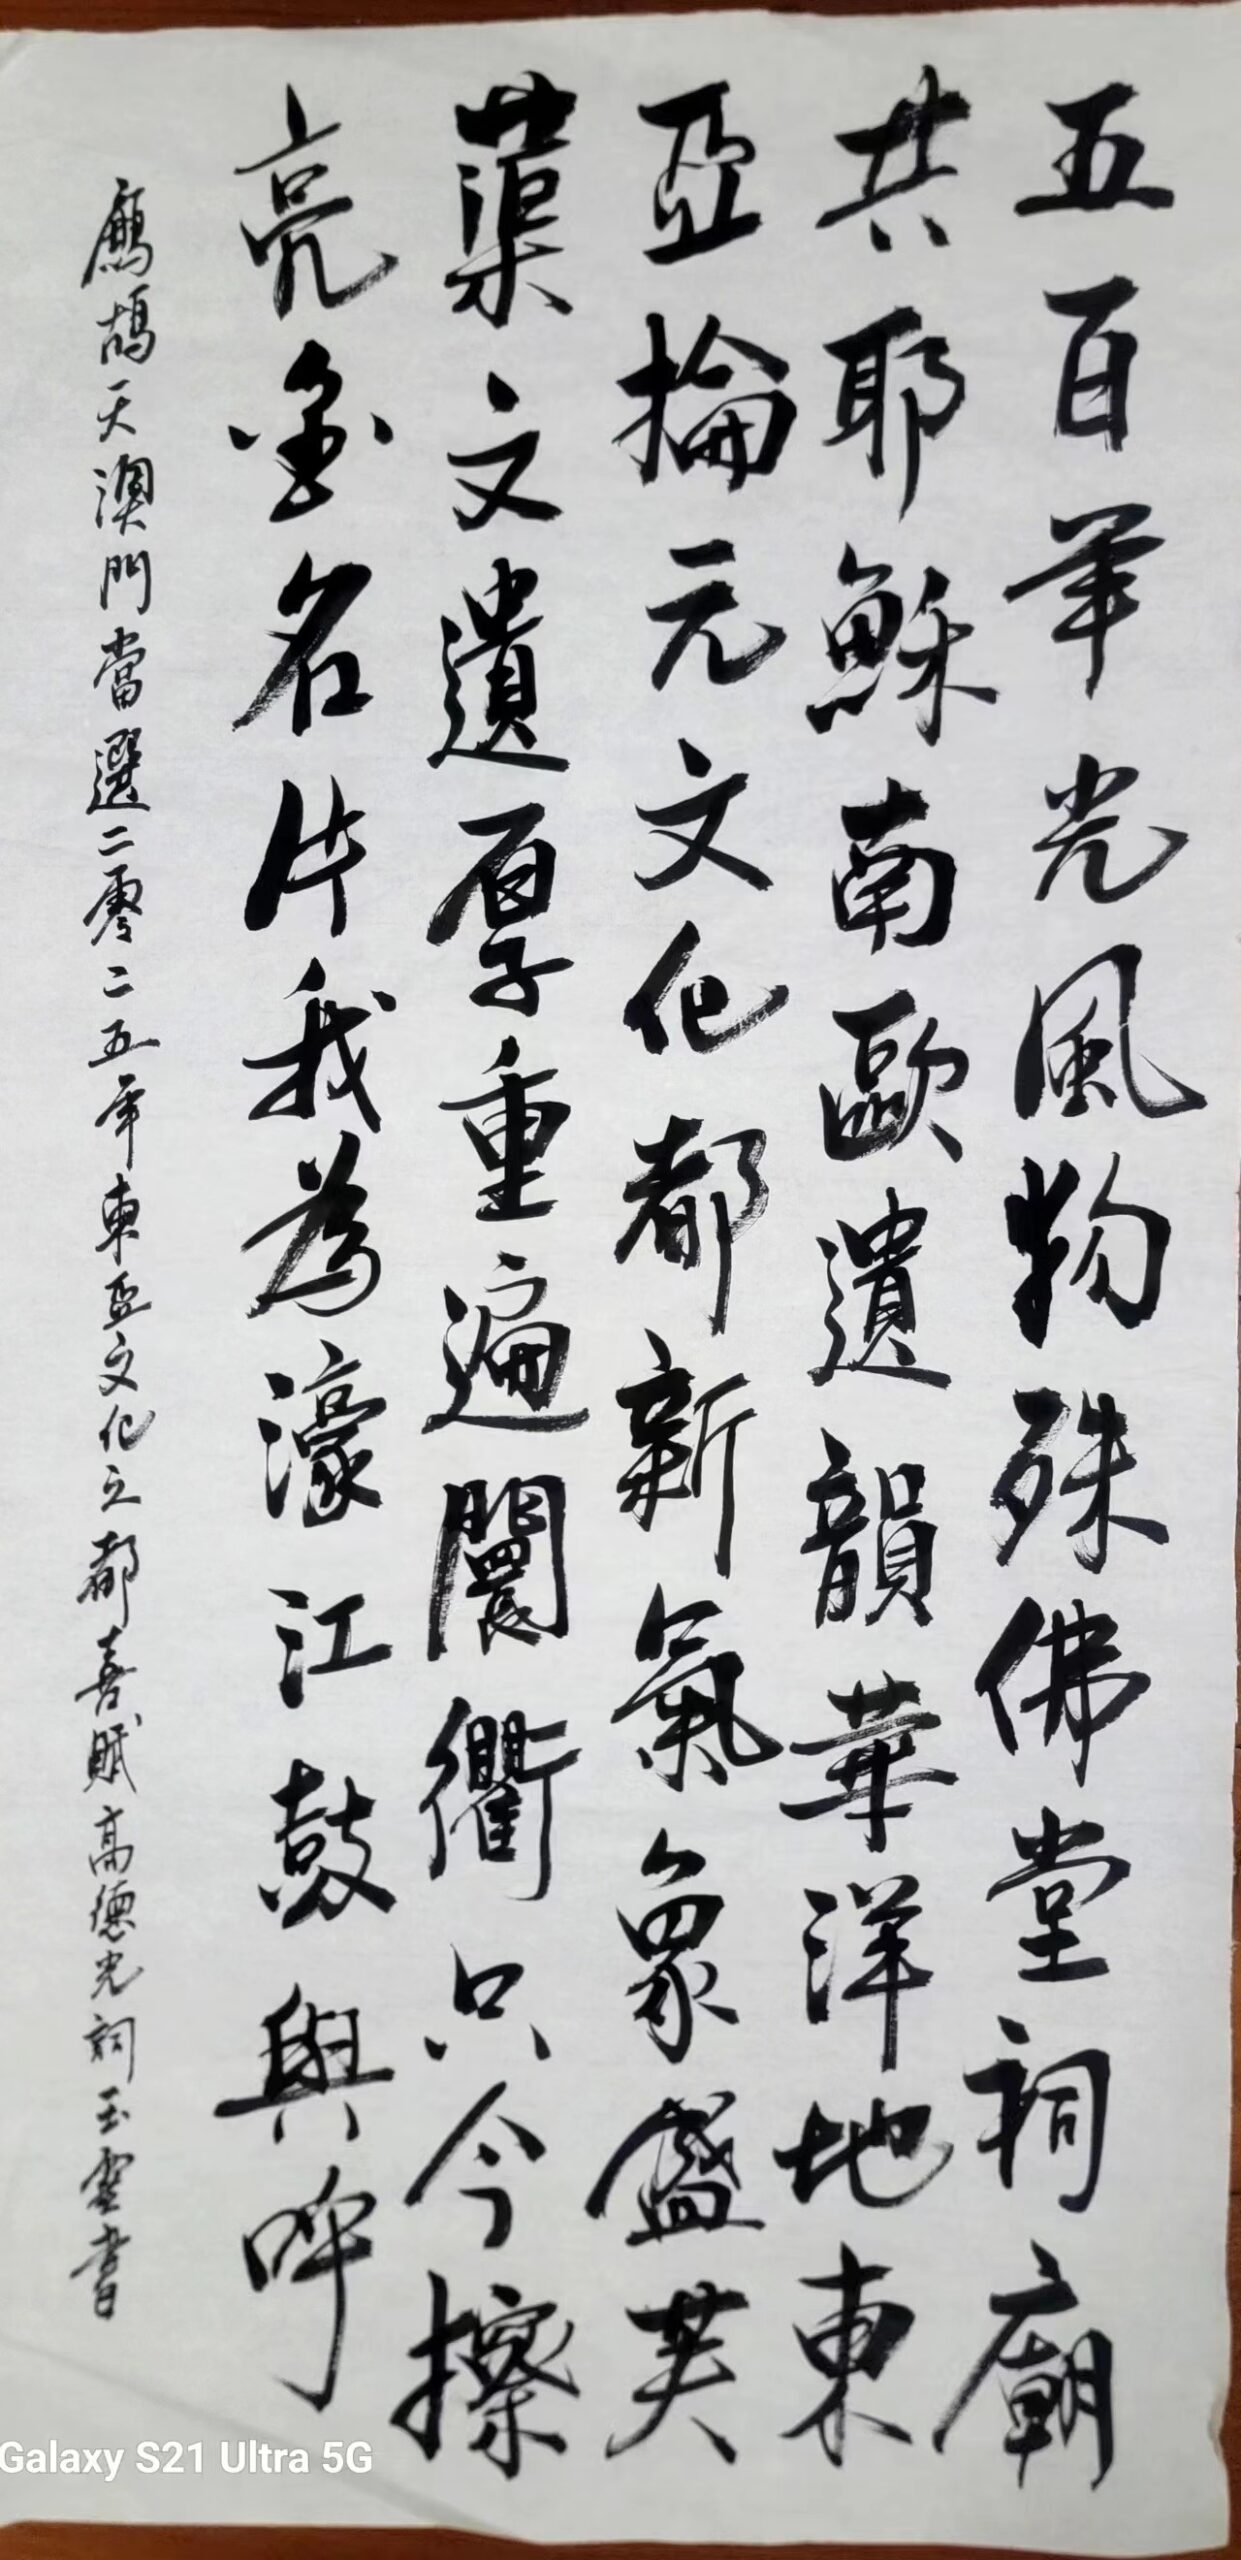 五百年光風物殊佛堂祠廟
共耶穌南歐遺韻華洋地東
亞掄元文化都新氣象盛芙
蕖文遺厚重遍闤衢只今擦
亮金名片我為濠江鼓與呼
鷓鴣天澳門當選二零二五年東亞文化之都喜賦高德光詞玉雲書
Galaxy S21 Ultra 5G